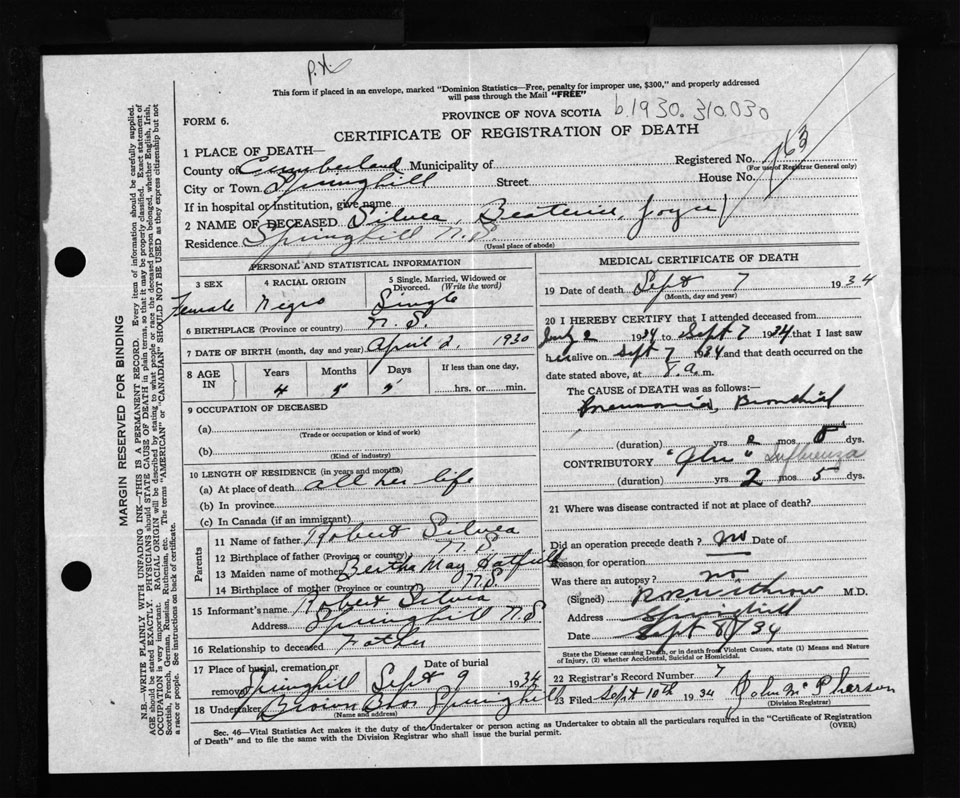 P.X.
This form if placed in an envelope, marked "Dominion Statistics—Free, penalty for improper use, $300," and properly addressed
will pass through the Mail "FREE"
PROVINCE OF NOVA SCOTIA b.1930.310.030
FORM 6.
CERTIFICATE OF REGISTRATION OF DEATH
1 PLACE OF DEATH—
County of Cumberland Municipality of
Registered No. 763
(For use of Registrar General only)
City or Town Springhill Street House No.
If in hospital or institution, give name
2 NAME OF DECEASED Silvea, Beaterice, Joyce
Residence Springhill N.S.
(Usual place of abode)
PERSONAL AND STATISTICAL INFORMATION
3 SEX
Female
4 RACIAL ORIGIN
Negro
5 Single, Married, Widowed or
Divorced. (Write the word)
Single
6 BIRTHPLACE (Province or country) N.S.
7 DATE OF BIRTH (month, day and year) April 2, 1930
8 AGE IN
Years Months Days If less than one day,
4 5 5 hrs. or min.
9 OCCUPATION OF DECEASED
(a)
(Trade or occupation or kind of work)
(b)
(Kind of industry)
10 LENGTH OF RESIDENCE (in years and months)
(a) At place of death all her life
(b) In province
(c) In Canada (if an immigrant)
Parents
11 Name of father Robert Silvea
12 Birthplace of father (Province or country) N.S.
13 Maiden name of mother Bertha May Hatfield
14 Birthplace of mother (Province or country) N.S.
15 Informant's name Robert Silvea
Address Springhill N.S.
16 Relationship to deceased Father
17 Place of burial, cremation or removal Springhill
Date of burial Sept 9 1934
18 Undertaker Brown Bros Springhill
(Name and address)
MEDICAL CERTIFICATE OF DEATH
19 Date of death Sept 7 1934
(Month, day and year)
20 I HEREBY CERTIFY that I attended deceased from
July 2 1934 to Sept 7 1934 that I last saw
her alive on Sept 7 1934 and that death occurred on the
date stated above, at 8 a. m.
The CAUSE of DEATH was as follows:—
Pneumonia, Bronchial
(duration) yrs 2 mos 5 dys.
CONTRIBUTORY "Flu" Influenza
(duration) yrs 2 mos 5 dys.
21 Where was disease contracted if not at place of death?
Did an operation precede death? no Date of
Reason for operation
Was there an autopsy? no
(Signed) Withrow M.D.
Address Springhill
Date Sept 8/34
State the Disease causing Death, or in death from Violent Causes, state (1) Means and Nature
of Injury, (2) whether Accidental, Suicidal or Homicidal.
22 Registrar's Record Number 7
23 Filed Sept. 10th 1934 John McPherson
(Division Registrar)
Sec. 46—Vital Statistics Act makes it the duty of the Undertaker or person acting as Undertaker to obtain all the particulars required in the "Certificate of Registration
of Death" and to file the same with the Division Registrar who shall issue the burial permit. (OVER)
MARGIN RESERVED FOR BINDING
N.B.—WRITE PLAINLY WITH UNFADING INK—THIS IS A PERMANENT RECORD. Every item of information should be carefully supplied.
AGE should be stated EXACTLY. PHYSICIANS should STATE CAUSE OF DEATH in plain terms, so that it may be properly classified. Exact statement of
OCCUPATION is very important. RACIAL ORIGIN will be described by stating to what people or race the deceased person belonged, whether English, Irish,
Scottish, French, German, Russian, Ruthenian, etc. The terms "AMERICAN" or "CANADIAN" SHOULD NOT BE USED as they express citizenship but not
a race or people. See instructions on back of certificate.